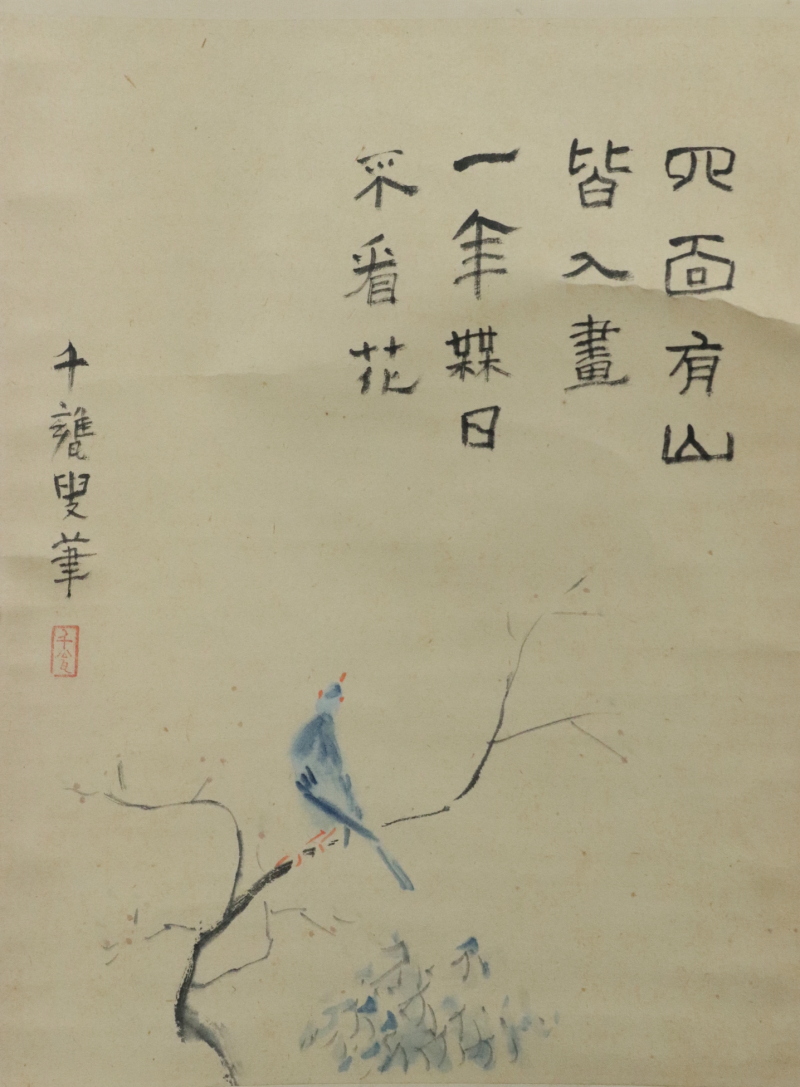 四面有山
皆入畫
一年無日
不看花
千甕叟筆